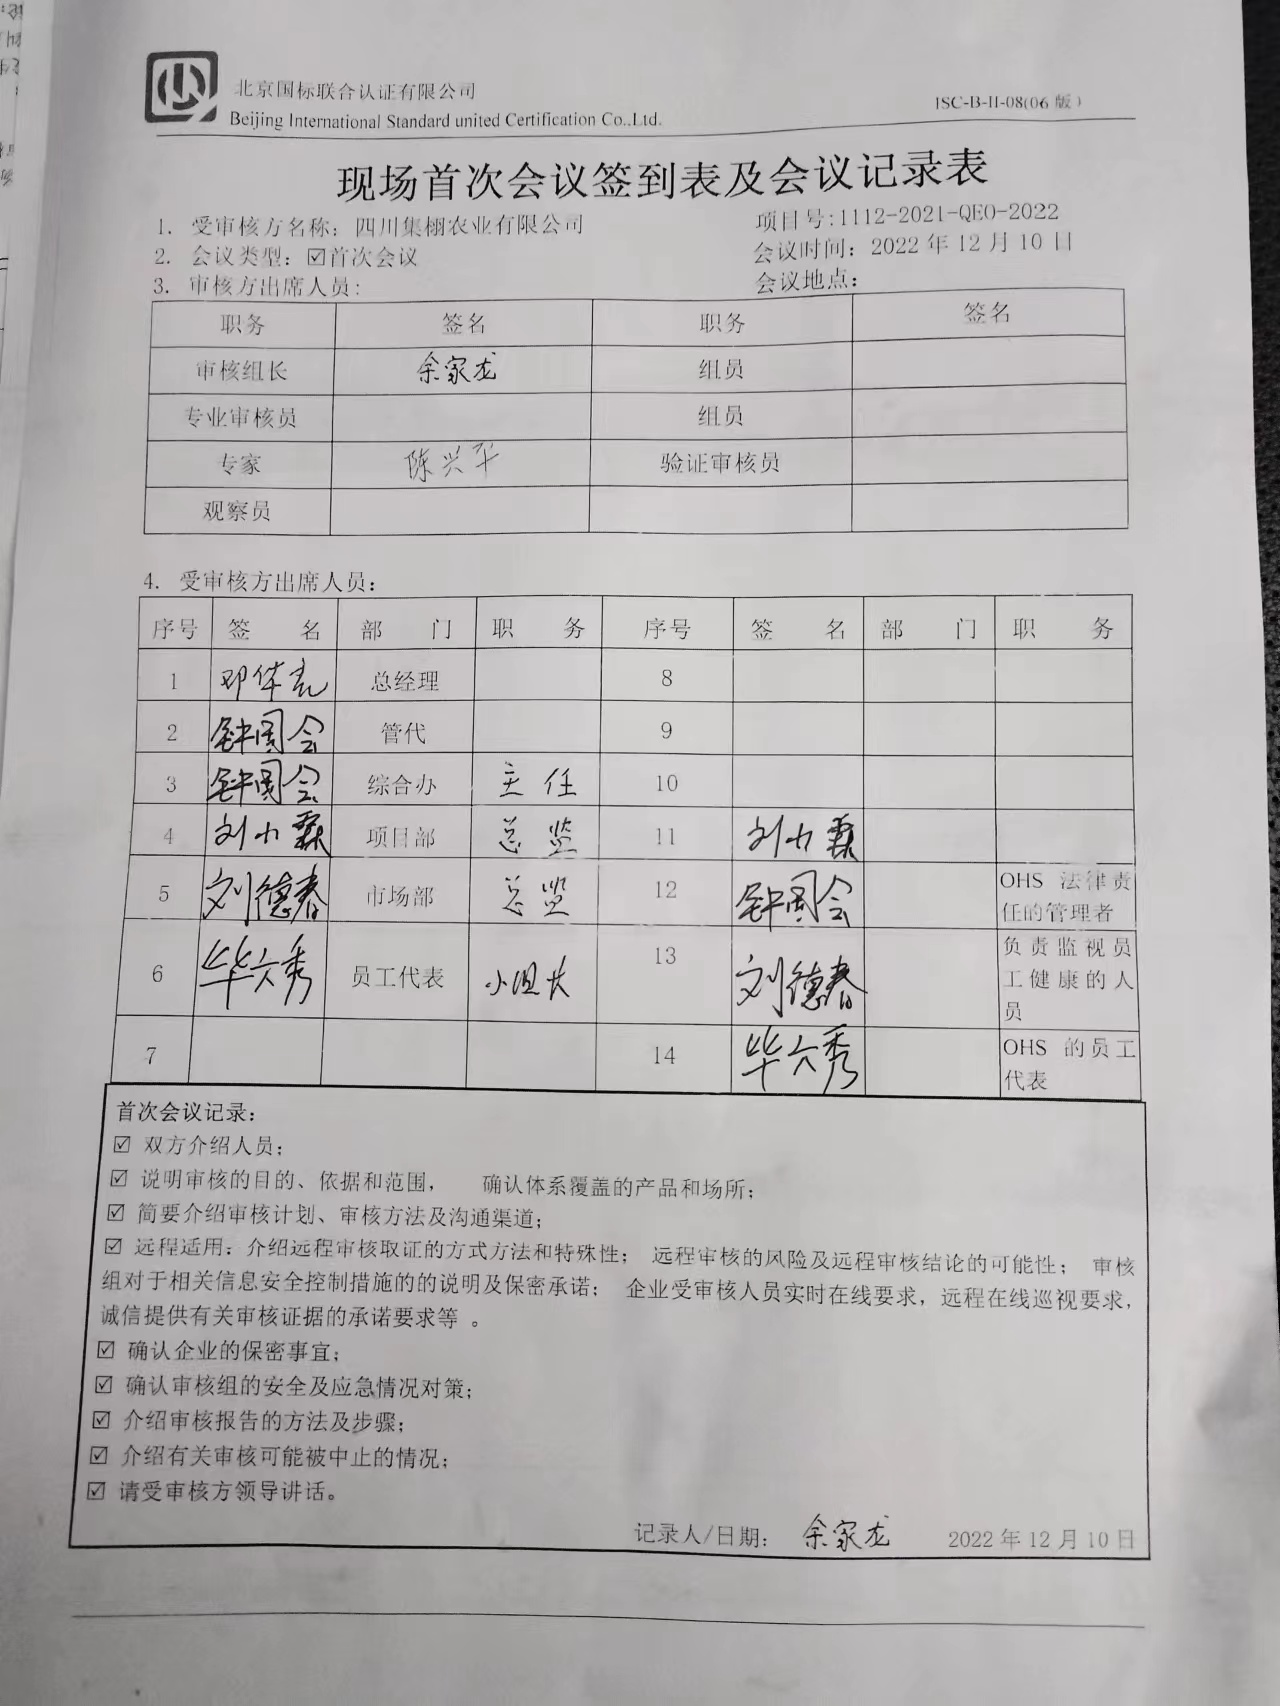 北京国标联合认证有限公司
Beijing International Standard united Certification Co.,Ltd.
ISC-B-II-08(06 版)
现场首次会议签到表及会议记录表
1. 受审核方名称：四川集栩农业有限公司 项目号:1112-2021-QEO-2022
2. 会议类型：☑首次会议 会议时间：2022 年 12 月 10 日
3. 审核方出席人员： 会议地点：
职务 签名 职务 签名
审核组长 余家龙 组员
专业审核员 组员
专家 陈兴华 验证审核员
观察员
4. 受审核方出席人员：
序号 签 名 部 门 职 务 序号 签 名 部 门 职 务
1 总经理 8
2 管代 9
3 综合办 主任 10
4 刘小霖 项目部 总监 11 刘小霖
5 刘德春 市场部 总监 12 OHS 法律责
任的管理者
6 毕六秀 员工代表 小组长 13 刘德春 负责监视员
工健康的人
员
7 14 毕六秀 OHS 的员工
代表
首次会议记录：
☑ 双方介绍人员；
☑ 说明审核的目的、依据和范围， 确认体系覆盖的产品和场所；
☑ 简要介绍审核计划、审核方法及沟通渠道；
☑ 远程适用：介绍远程审核取证的方式方法和特殊性； 远程审核的风险及远程审核结论的可能性； 审核
组对于相关信息安全控制措施的的说明及保密承诺； 企业受审核人员实时在线要求，远程在线巡视要求，
诚信提供有关审核证据的承诺要求等 。
☑ 确认企业的保密事宜；
☑ 确认审核组的安全及应急情况对策；
☑ 介绍审核报告的方法及步骤；
☑ 介绍有关审核可能被中止的情况；
☑ 请受审核方领导讲话。
记录人/日期： 余家龙 2022 年 12 月 10 日